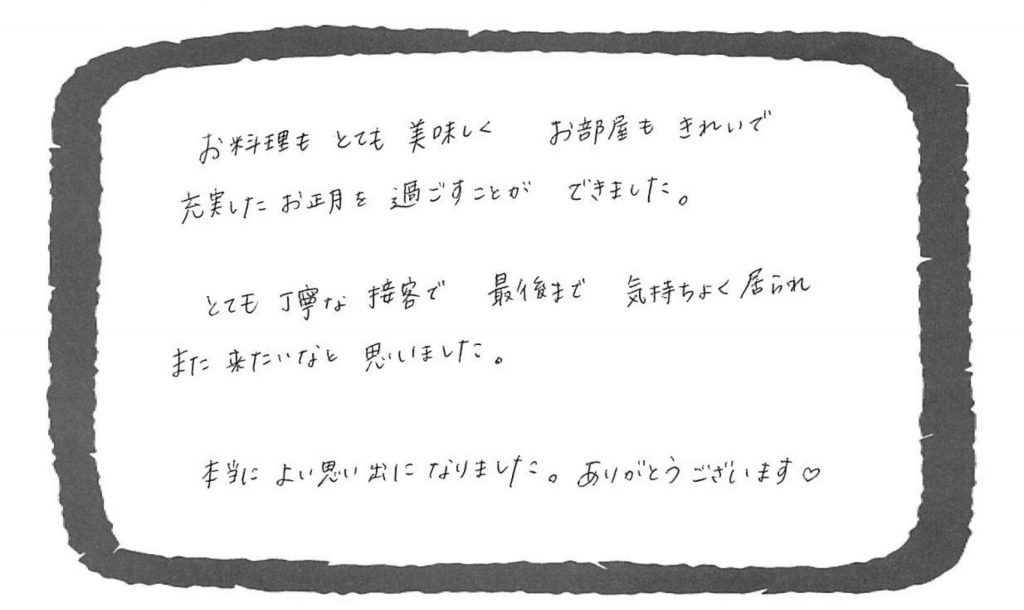 お料理も とても 美味しく お部屋も きれいで
充実した お正月を 過ごすことが できました。
とても 丁寧な 接客で 最後まで 気持ちよく 居られ
また 来たいなと 思いました。
本当に よい思い出に なりました。ありがとうございます♡